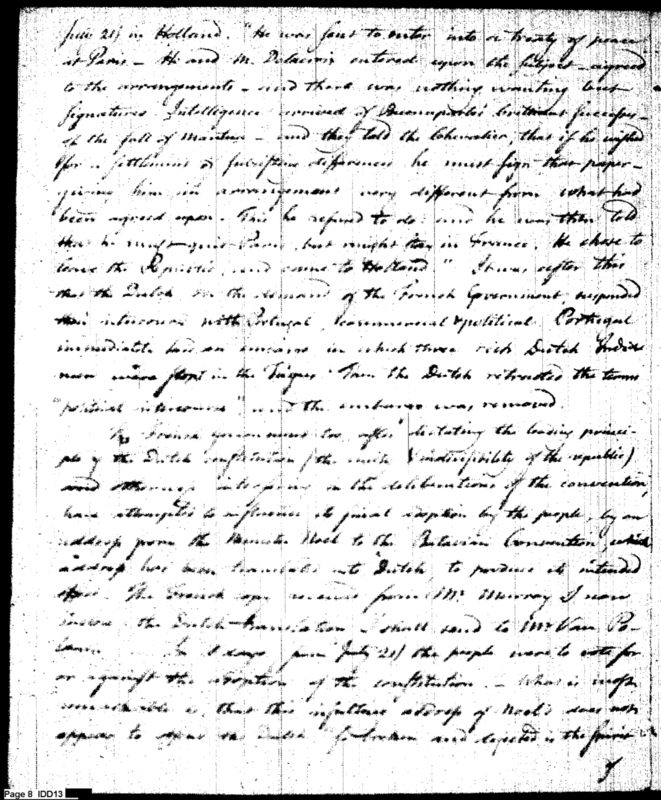 July 21) in Holland. "He was sent to enter into a treaty of peace
at Paris — He and M. Delacroix entered upon the subject — agreed
to the arrangements — and there was nothing wanting but
signatures. Intelligence arrived of Buonaparte's brilliant successes —
of the fall of Mantua — and they told the Chevalier, that if he wished
for a settlement of subsisting differences he must sign that paper —
giving him an arrangement very different from what had
been agreed upon. This he refused to do: and he was then told
that he must quit Paris, but might stay in France. He chose to
leave the Republic, and came to Holland" It was after this
that the Dutch on the demand of the French Government, suspended
their intercourse with Portugal, commercial & political. Portugal
immediately laid an embargo in which three rich Dutch
men were in the Tagus. Then the Dutch retracted the terms
"political intercourse" and the embargo was removed.
The French government too after dictating the leading princi-
ple of the Dutch constitution (the unity & indivisibility of the republic)
and otherwise interfering in the deliberations of the convention,
have attempted to influence its final adoption by the people, by an
address from the Minister Noel to the Batavian Convention, which
address has been translated into Dutch, to produce its intended
effect. The French copy received from Mr. Murray I now
inclose the Dutch translation I shall send to Mr Van Po-
lanen. In 8 days from July 21) the people were to vote for
or against the adoption of the constitution. — What is most
remarkable is, that this insolent address of Noel's does not
appear to the Dutch So broken and dejected is the spirit
of
Page 8 IDD13